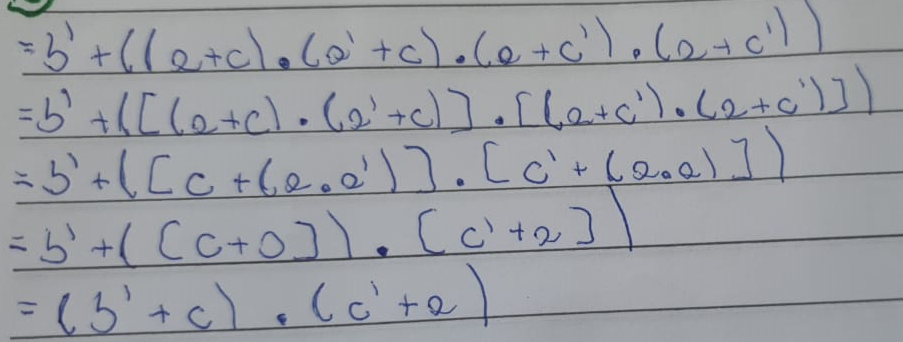 = b' + ((a+c).(a'+c).(a+c').(a+c'))
= b' + ([(a+c).(a'+c)].[(a+c').(a+c')])
= b' + ([c+(a.a')].[c'+(a.a)])
= b' + ([c+0]).[c'+a])
= (b'+c).(c'+a)